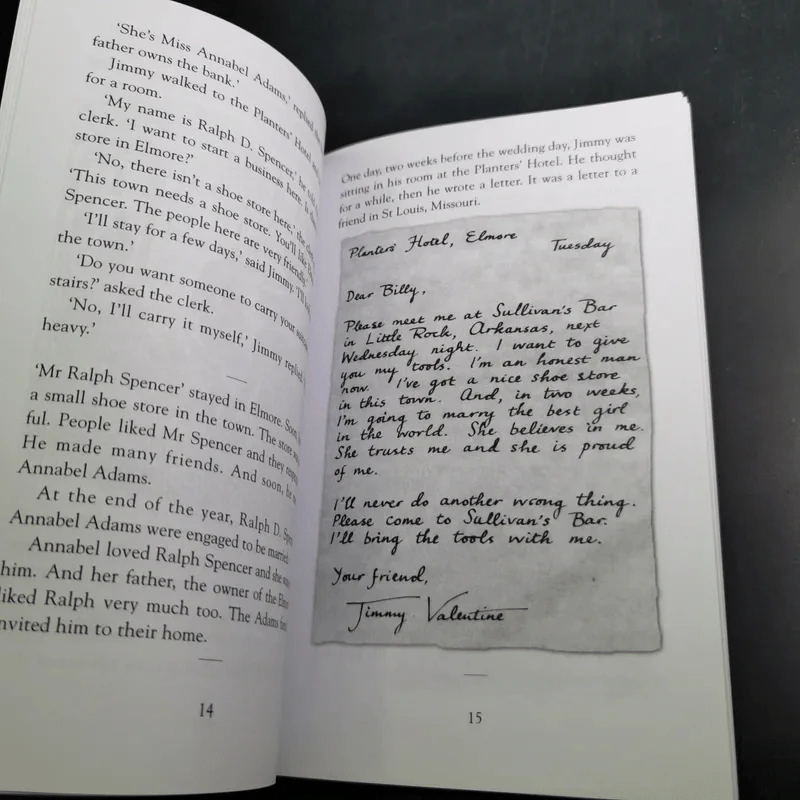 ‘She’s Miss Annabel Adams,’ replied the
father owns the bank.’
Jimmy walked to the Planters’ Hotel
for a room.
‘My name is Ralph D. Spencer,’ he told
clerk. ‘I want to start a business here. Is
store in Elmore?’
‘No, there isn’t a shoe store here,’ the
‘This town needs a shoe store. You’ll like
Spencer. The people here are very friendly.’
‘I’ll stay for a few days,’ said Jimmy. ‘I’ll
the town.’
‘Do you want someone to carry your
stairs?’ asked the clerk.
‘No, I’ll carry it myself,’ Jimmy replied
heavy.’
‘Mr Ralph Spencer’ stayed in Elmore. Soon,
a small shoe store in the town. The store
ful. People liked Mr Spencer and they
He made many friends. And soon, he
Annabel Adams.
At the end of the year, Ralph D.
Annabel Adams were engaged to be married.
Annabel loved Ralph Spencer and she
him. And her father, the owner of the
liked Ralph very much too. The Adams
invited him to their home.
14
One day, two weeks before the wedding day, Jimmy was
sitting in his room at the Planters’ Hotel. He thought
for a while, then he wrote a letter. It was a letter to a
friend in St Louis, Missouri.
Planters’ Hotel, Elmore
Tuesday
Dear Billy,
Please meet me at Sullivan’s Bar
in Little Rock, Arkansas, next
Wednesday night. I want to give
you my tools. I’m an honest man
now. I’ve got a nice shoe store
in this town. And, in two weeks,
I’m going to marry the best girl
in the world. She believes in me.
She trusts me and she is proud
of me.
I’ll never do another wrong thing.
Please come to Sullivan’s Bar.
I’ll bring the tools with me.
Your friend,
Jimmy Valentine
15